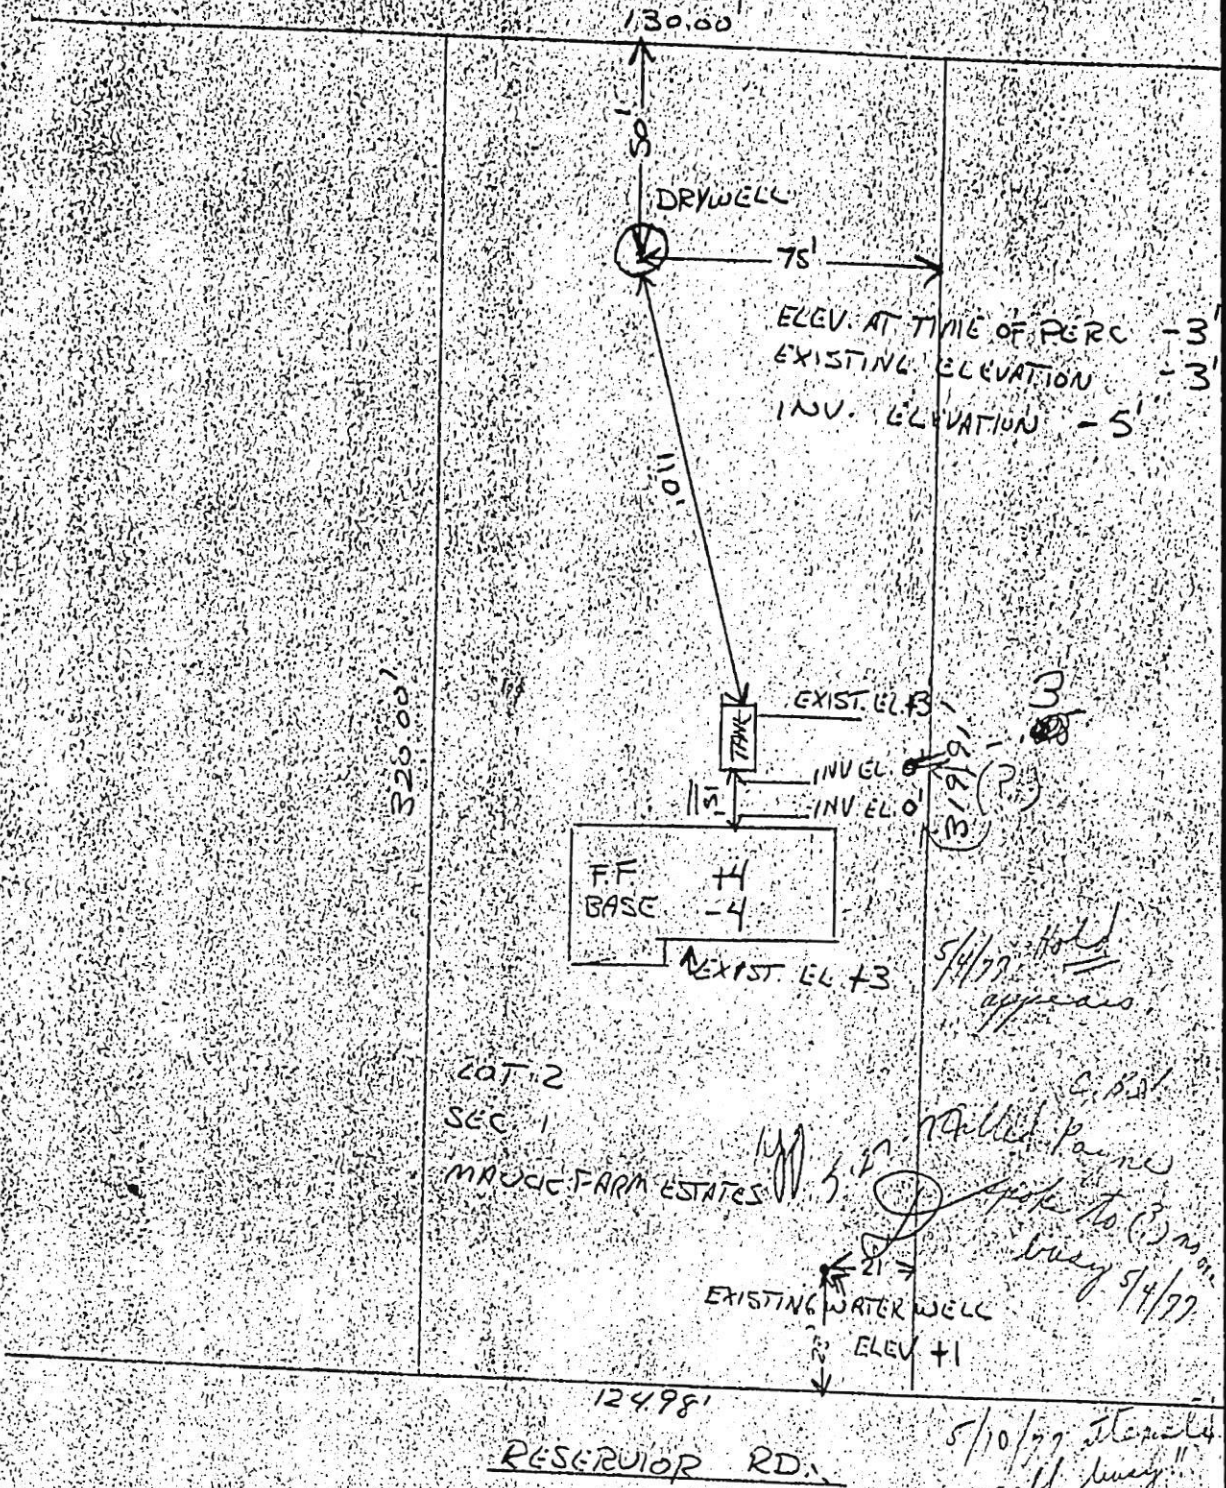 130.00'
50'
DRYWELL
75'
ELEV. AT TIME OF PERC -3'
EXISTING ELEVATION -3'
INV. ELEVATION -5'
110'
320.00'
TANK
EXIST. EL +3
INV EL 0
INV EL 0
15'
319.91'
(?)
3
F.F +4
BASE -4
EXIST. EL +3
5/4/77 Hold
appears
LOT 2
SEC. 1
MAUCK FARM ESTATES
spoke to (?) no one
busy 5/4/77
21
EXISTING WATER WELL
ELEV +1
124.98'
RESERVIOR RD.
5/10/77
busy"